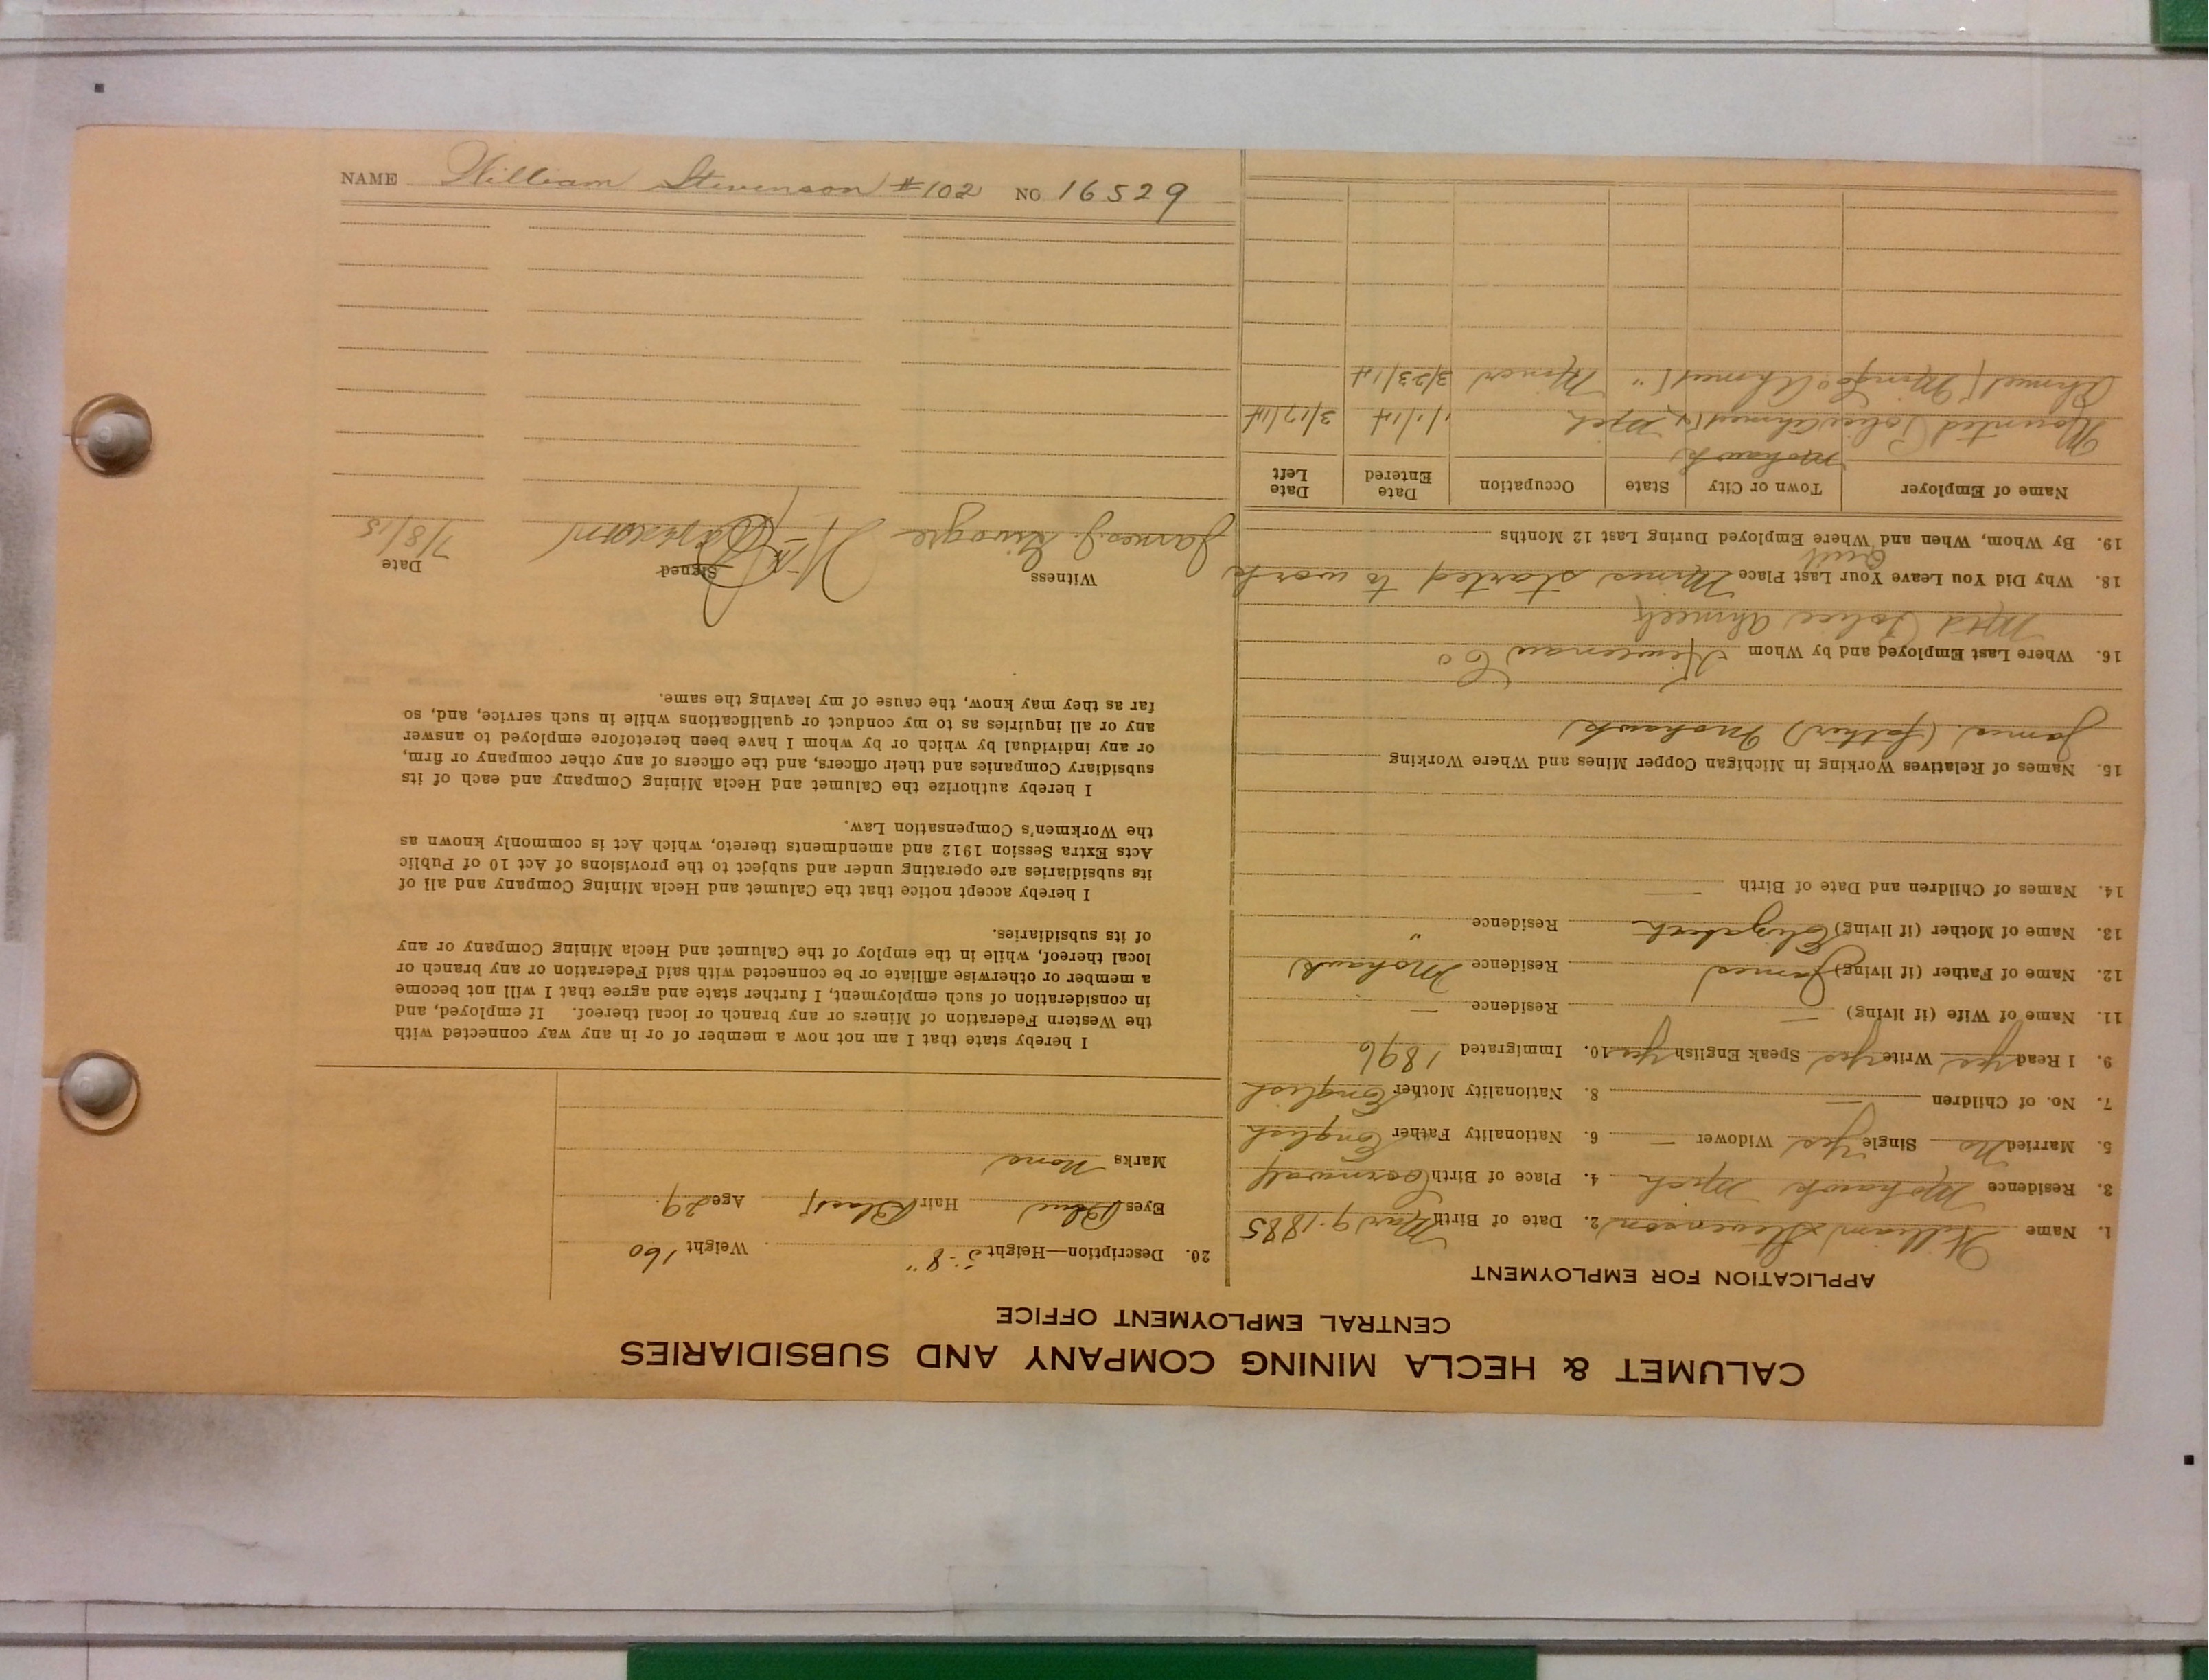 CALUMET & HECLA MINING COMPANY AND SUBSIDIARIES
CENTRAL EMPLOYMENT OFFICE
APPLICATION FOR EMPLOYMENT
1. Name William Stevenson 2. Date of Birth Mar 9. 1885
3. Residence Mohawk Mich 4. Place of Birth Cornwall
5. Married No Single Yes Widower — 6. Nationality Father English
7. No. of Children — 8. Nationality Mother English
9. I Read Yes Write Yes Speak English Yes 10. Immigrated 1896
11. Name of Wife (if living) — Residence —
12. Name of Father (if living) James Residence Mohawk
13. Name of Mother (if living) Elizabeth Residence "
14. Names of Children and Date of Birth —
15. Names of Relatives Working in Michigan Copper Mines and Where Working
James. (father) Mohawk
16. Where Last Employed and by Whom Keweenaw Co
Mtd Police Ahmeek
18. Why Did You Leave Your Last Place Mines started to work
Quit
19. By Whom, When and Where Employed During Last 12 Months
Name of Employer Town or City State Occupation Date Entered Date Left
Mohawk
Mounted Police Ahmeek Mich 1/1/14 3/17/14
Ahmeek Ming Co Ahmeek " Miner 3/23/14
20. Description—Height 5-8" Weight 160
Eyes Blue Hair Black Age 29
Marks None
I hereby state that I am not now a member of or in any way connected with
the Western Federation of Miners or any branch or local thereof. If employed, and
in consideration of such employment, I further state and agree that I will not become
a member or otherwise affiliate or be connected with said Federation or any branch or
local thereof, while in the employ of the Calumet and Hecla Mining Company or any
of its subsidiaries.
I hereby accept notice that the Calumet and Hecla Mining Company and all of
its subsidiaries are operating under and subject to the provisions of Act 10 of Public
Acts Extra Session 1912 and amendments thereto, which Act is commonly known as
the Workmen's Compensation Law.
I hereby authorize the Calumet and Hecla Mining Company and each of its
subsidiary Companies and their officers, and the officers of any other company or firm,
or any individual by which or by whom I have been heretofore employed to answer
any or all inquiries as to my conduct or qualifications while in such service, and, so
far as they may know, the cause of my leaving the same.
Witness Signed Date
James J. Wm Stevenson 7/8/15
NAME William Stevenson #102 NO 16529